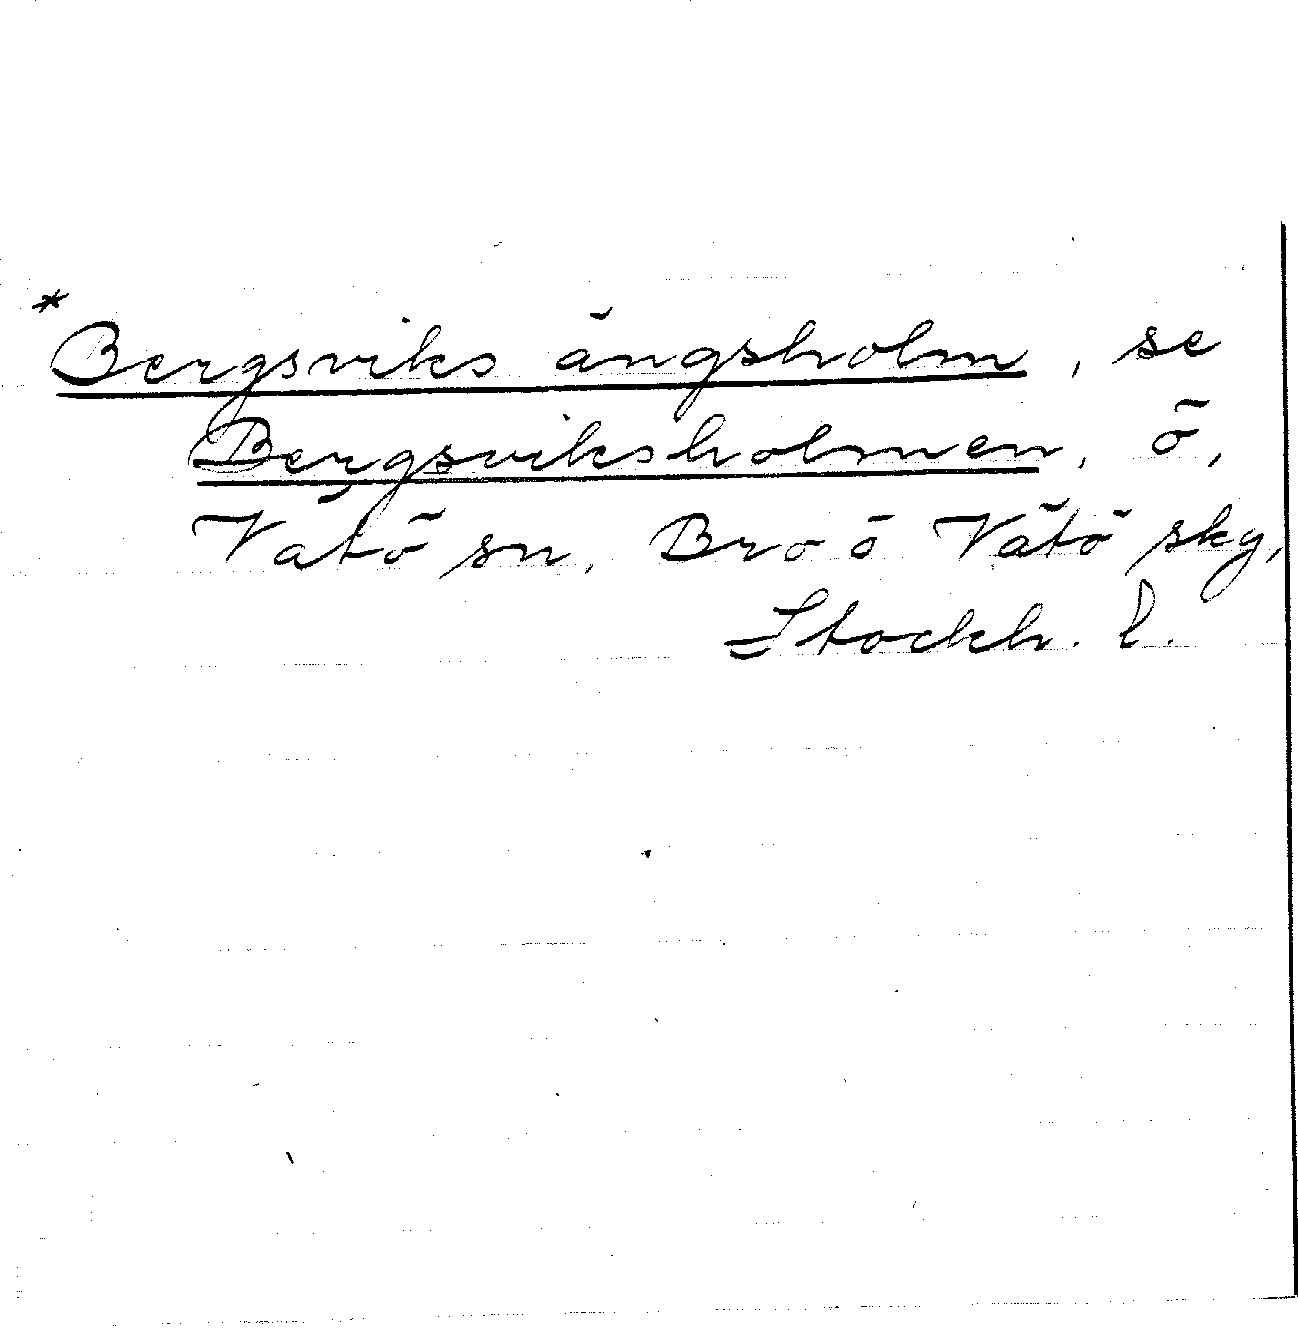 *Bergsviks ängsholm, se
Bergsviksholmen, ö,
Vätö sn, Bro o Vätö sky,
Stockh. l.